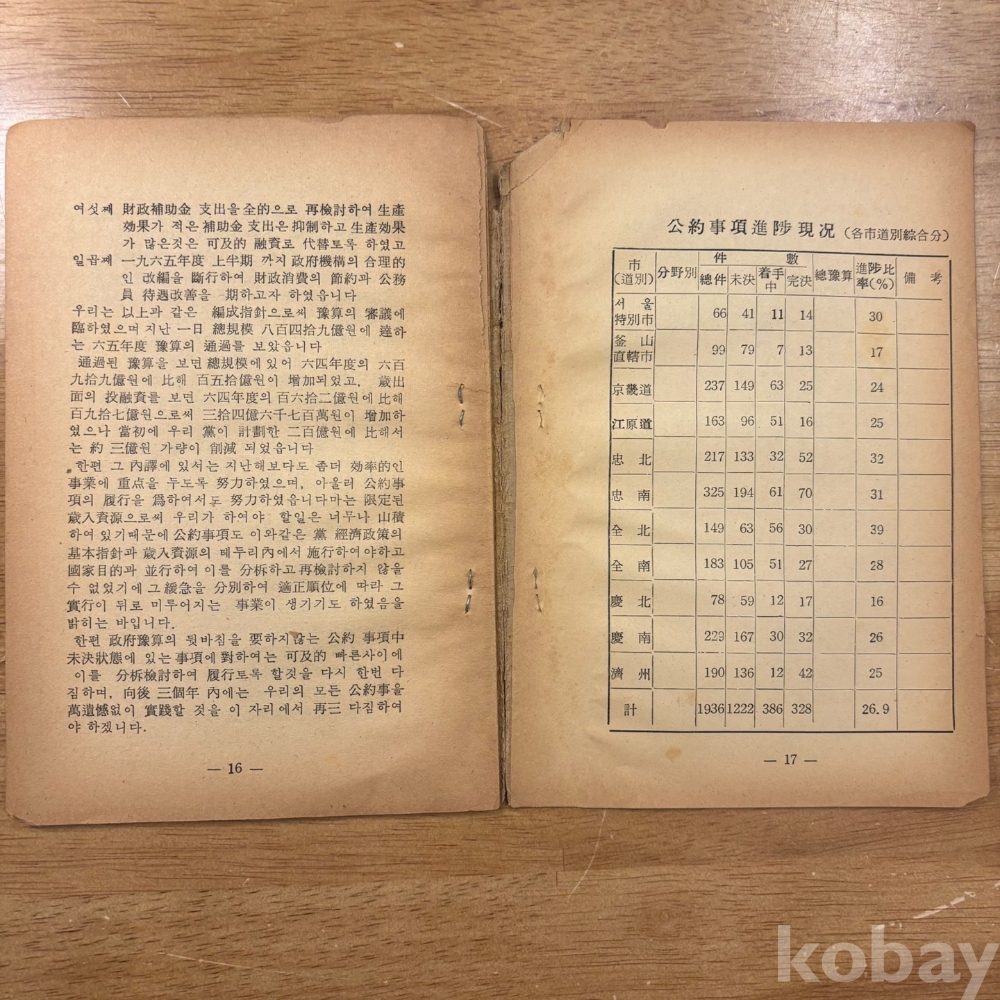 여섯째 財政補助金 支出을 全的으로 再檢討하여 生產
効果가 적은 補助金 支出은 抑制하고 生產効果
가 많은것은 可及的 融資로 代替토록 하였고
일곱째 一九六五年度 上半期 까지 政府機構의 合理的
인 改編을 斷行하여 財政消費의 節約과 公務
員 待遇改善을 期하고자 하였읍니다
우리는 以上과 같은 編成指針으로써 豫算의 審議에
臨하였으며 지난 一日 總規模 八百四拾九億원에 達하
는 六五年度 豫算의 通過를 보았읍니다
通過된 豫算을 보면 總規模에 있어 六四年度의 六百
九拾九億원에 比해 百五拾億원이 增加되었고, 歲出
面의 投融資를 보면 六四年度의 百六拾二億원에 比해
百九拾七億원으로써 三拾四億六千七百萬원이 增加하
였으나 當初에 우리 黨이 計劃한 二百億원에 比해서
는 約 三億원 가량이 削減 되었읍니다
한편 그 內譯에 있서는 지난해보다도 좀더 効率的인
事業에 重点을 두도록 努力하였으며, 아울러 公約事
項의 履行을 爲하여서도 努力하였읍니다마는 限定된
歲入資源으로써 우리가 하여야 할일은 너무나 山積
하여 있기때문에 公約事項도 이와같은 黨 經濟政策의
基本指針과 歲入資源의 테두리內에서 施行하여야하고
國家目的과 並行하여 이를 分析하고 再檢討하지 않을
수 없었기에 그 緩急을 分別하여 適正順位에 따라 그
實行이 뒤로 미루어지는 事業이 생기기도 하였음을
밝히는 바입니다.
한편 政府豫算의 뒷바침을 要하지않는 公約 事項中
未決狀態에 있는 事項에 對하여는 可及的 빠른사이에
이를 分析檢討하여 履行토록 할것을 다시 한번 다
짐하며, 向後 三個年 內에는 우리의 모든 公約事을
萬遺憾없이 實踐할 것을 이 자리에서 再三 다짐하여
야 하겠니다.
— 16 —
公約事項進陟現況 (各市道別綜合分)
市(道別) 分野別 件數 總件 未決 着手中 完決 總豫算 進陟比率(%) 備考
서울特別市 66 41 11 14 30
釜山直轄市 99 79 7 13 17
京畿道 237 149 63 25 24
江原道 163 96 51 16 25
忠北 217 133 32 52 32
忠南 325 194 61 70 31
全北 149 63 56 30 39
全南 183 105 51 27 28
慶北 78 59 12 17 16
慶南 229 167 30 32 26
濟州 190 136 12 42 25
計 1936 1222 386 328 26.9
— 17 —
kobay